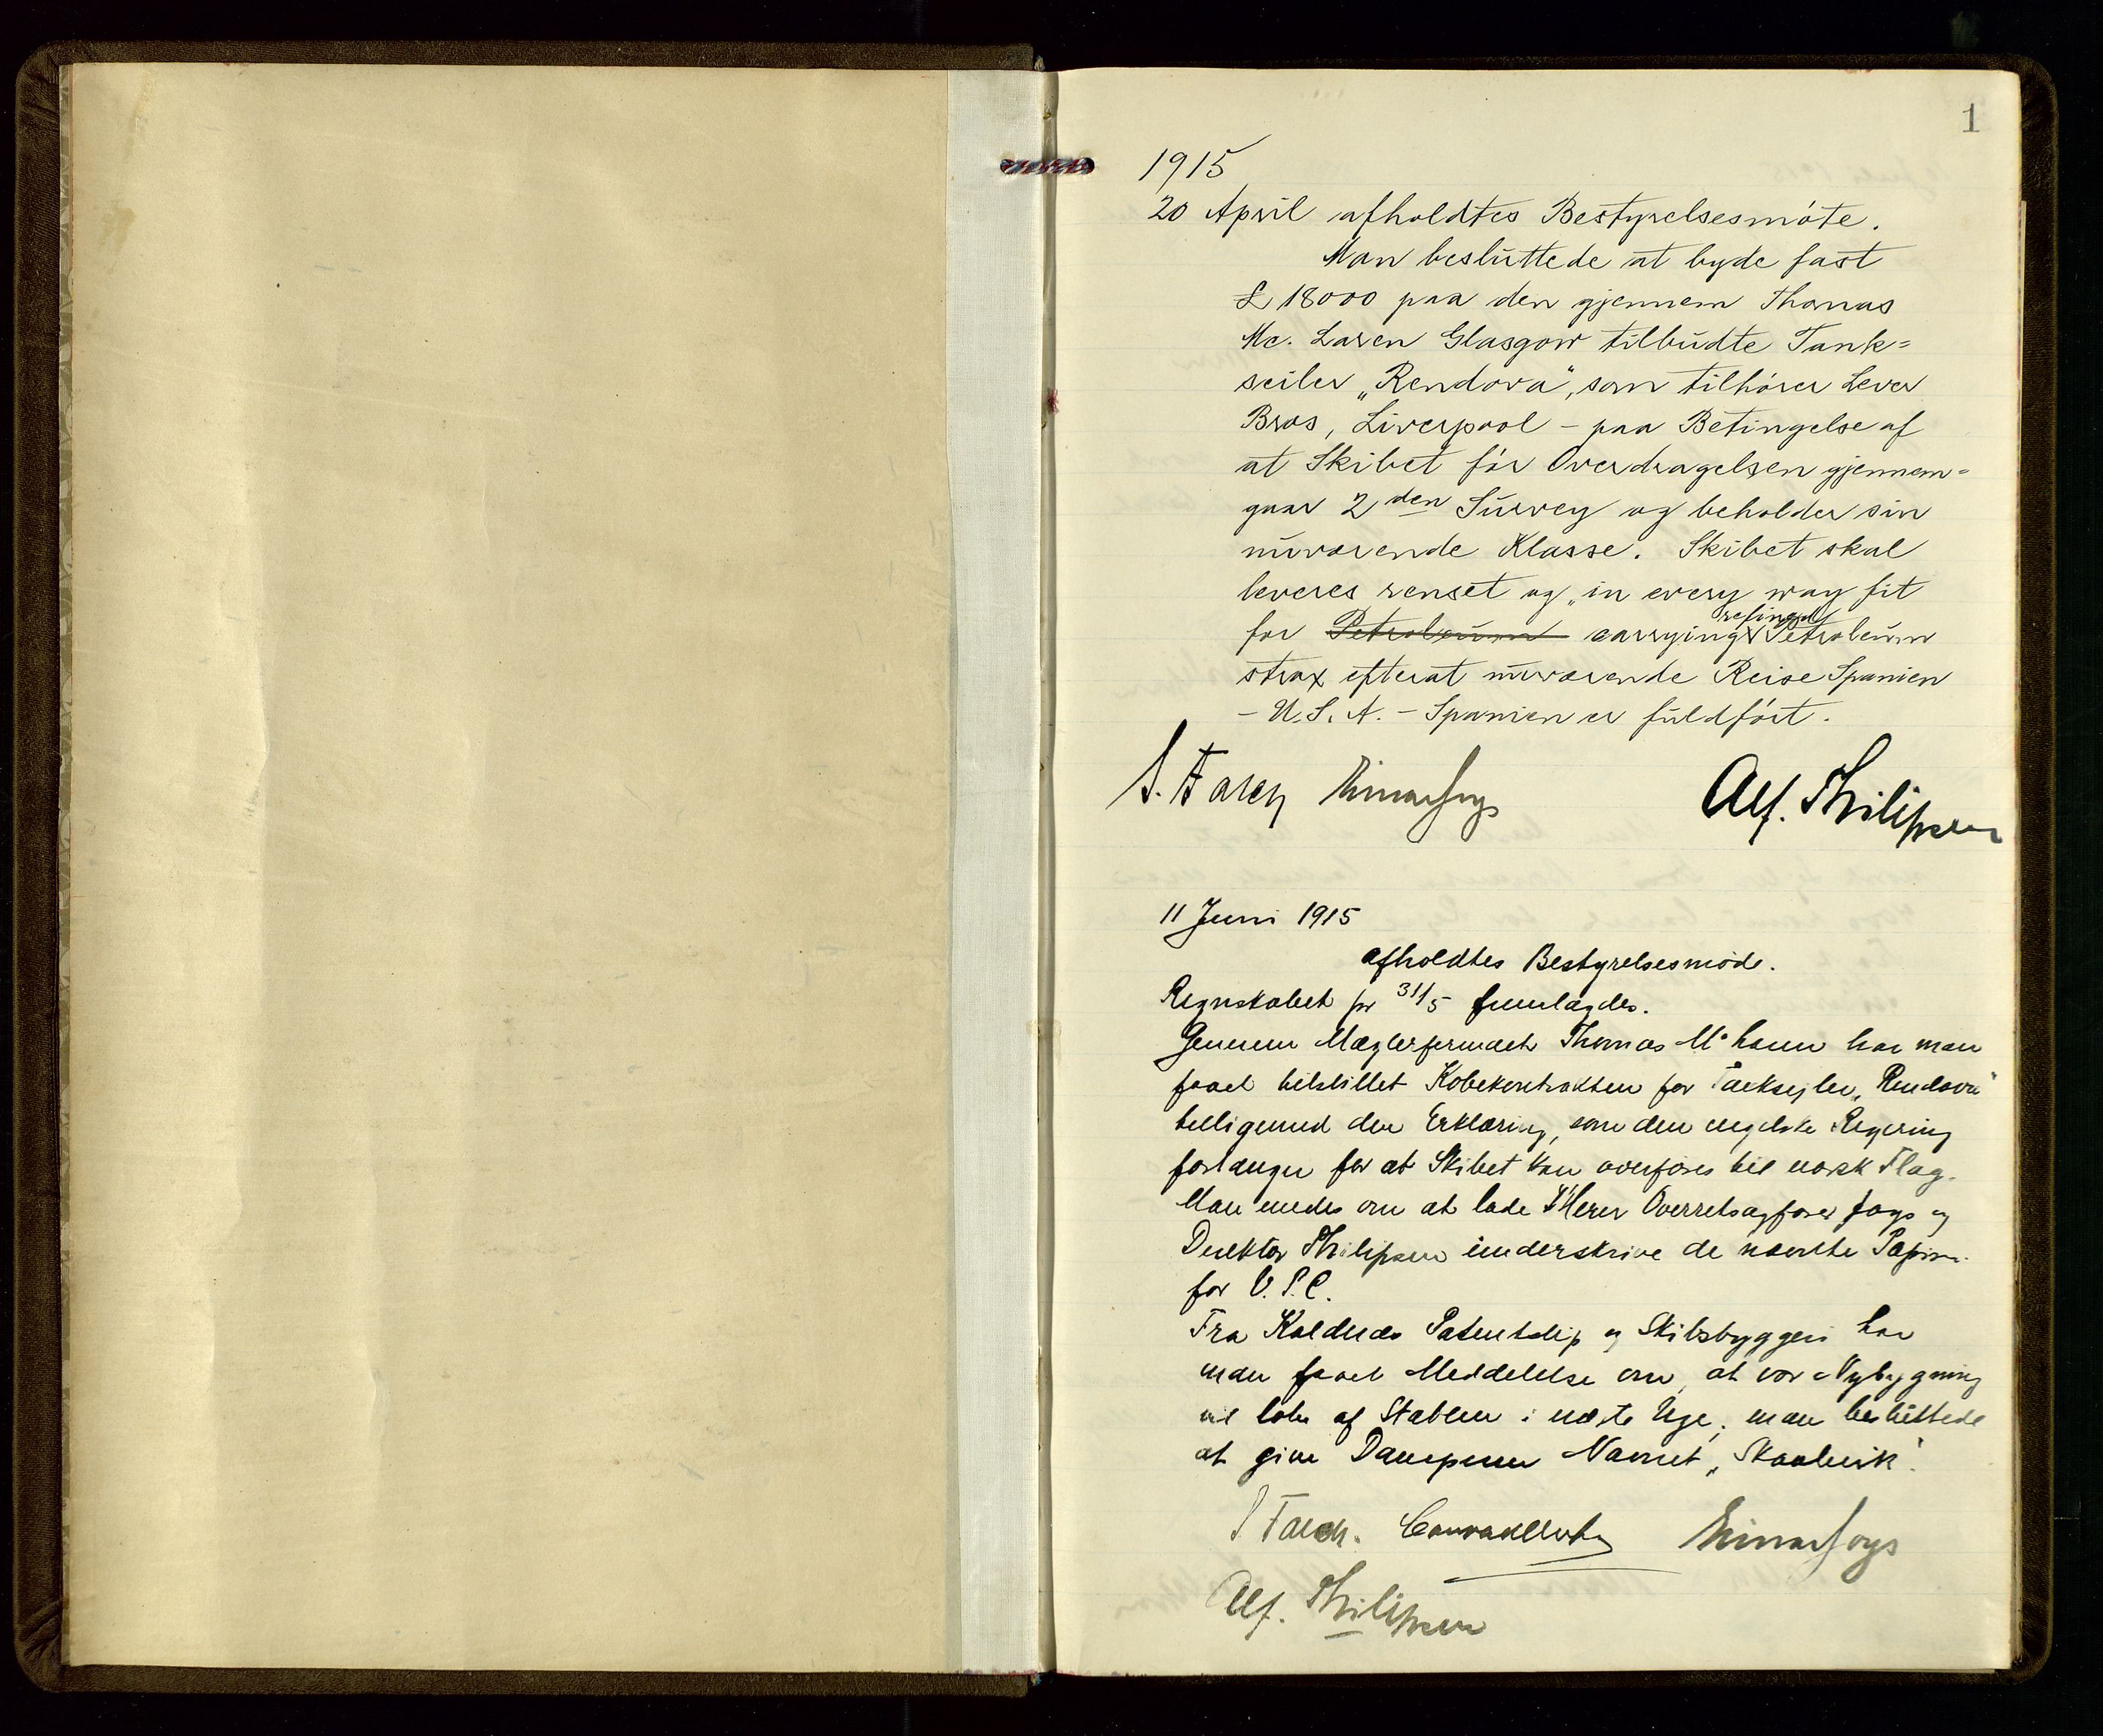 1
1915
20 April afholdtes Bestyrelsesmöte.
Man besluttede at byde fast
£ 18000 paa den gjennem Thomas
Mc. Laren Glasgow tilbudte Tank=
seiler „Rendova“, som tilhörer Lever
Bros, Liverpool – paa Betingelse af
at Skibet för Overdragelsen gjennem=
gaar 2den Survey og beholder sin
nuværende Klasse. Skibet skal
leveres renset og „in every way fit
for Petroleum carrying refined Petroleum
strax efterat nuværende Reise Spanien
– U.S.A. – Spanien er fuldfört.
Alf. Philipsen
11 Juni 1915
afholdtes Bestyrelsesmöde.
Regnskabet pr 31/5 fremlagdes.
Gjennem Mæglerfirmaet Thomas Mc Laren har man
faaet tilstillet Köbekontrakten for Tankseiler „Rendova“
tilligemed den Erklæring, som den engelske Regjering
forlanger for at Skibet kan overföres til norsk Flag.
Man enedes om at lade Herrer Overretssagförer Joys og
Direktör Philipsen underskrive de nævnte Papirer
for V.P.C.
Fra Kaldnes Patentslip og Skibsbyggeri har
man faaet Meddelelse om, at vor Nybygning
vil löbe af Stabelen i næste Uge; man besluttede
at give Damperen Navnet
Einar Joys
Alf. Philipsen